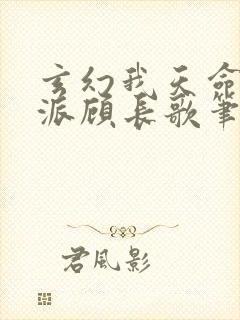 玄幻我天命
派顾长歌笔
君风影